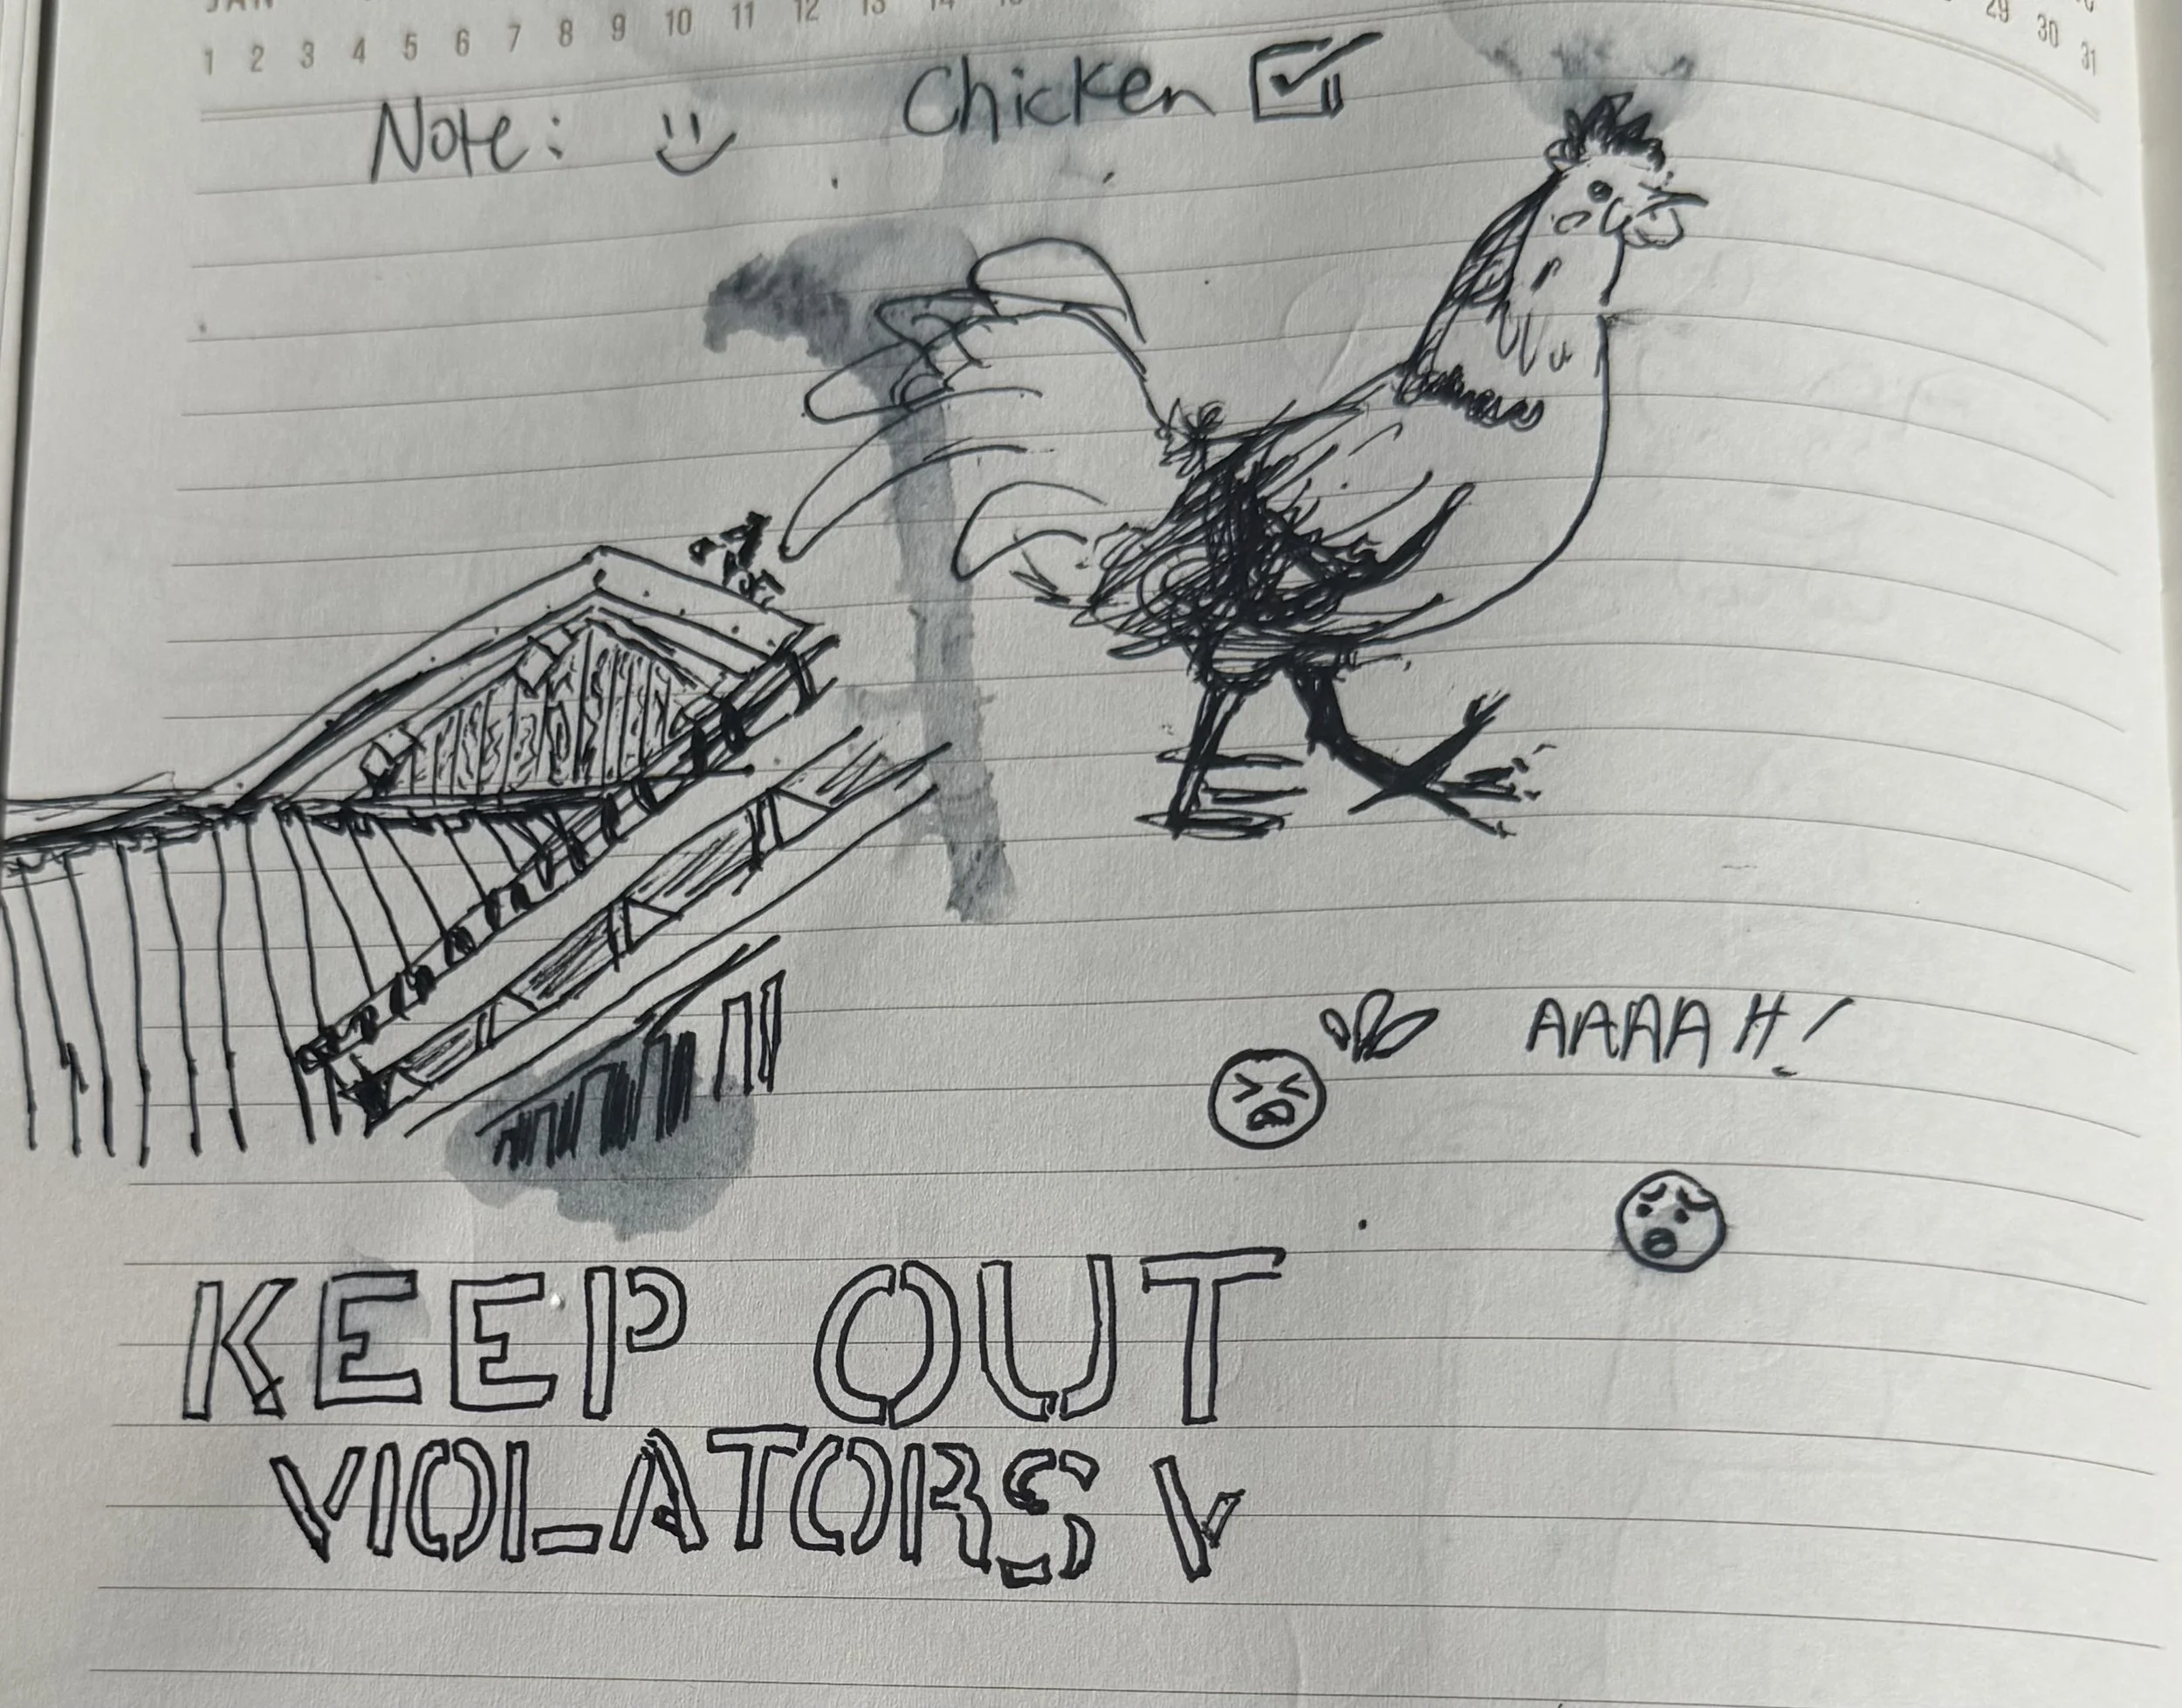 JAN
1 2 3 4 5 6 7 8 9 10 11 12 13 14 15
29 30 31
Note: Chicken
AAAAH!
KEEP OUT
VIOLATORS V